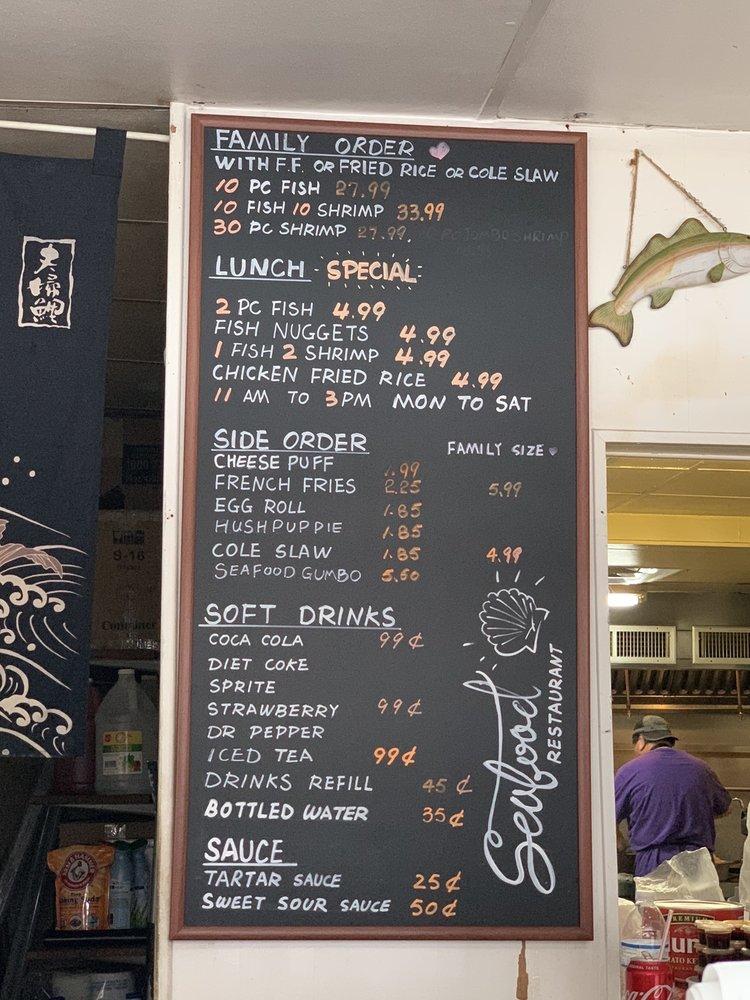 FAMILY ORDER
WITH F.F. OR FRIED RICE OR COLE SLAW
10 PC FISH 27.99
10 FISH 10 SHRIMP 33.99
30 PC SHRIMP 27.99.
LUNCH - SPECIAL
2 PC FISH 4.99
FISH NUGGETS 4.99
1 FISH 2 SHRIMP 4.99
CHICKEN FRIED RICE 4.99
11 AM TO 3 PM MON TO SAT
SIDE ORDER FAMILY SIZE
CHEESE PUFF 1.99
FRENCH FRIES 2.25 5.99
EGG ROLL 1.85
HUSHPUPPIE 1.85
COLE SLAW 1.85 4.99
SEAFOOD GUMBO 5.50
SOFT DRINKS
COCA COLA 99¢
DIET COKE
SPRITE
STRAWBERRY 99¢
DR PEPPER
ICED TEA 99¢
DRINKS REFILL 45¢
BOTTLED WATER 35¢
SAUCE
TARTAR SAUCE 25¢
SWEET SOUR SAUCE 50¢
Seafood
RESTAURANT
夫婦鯉
S-16